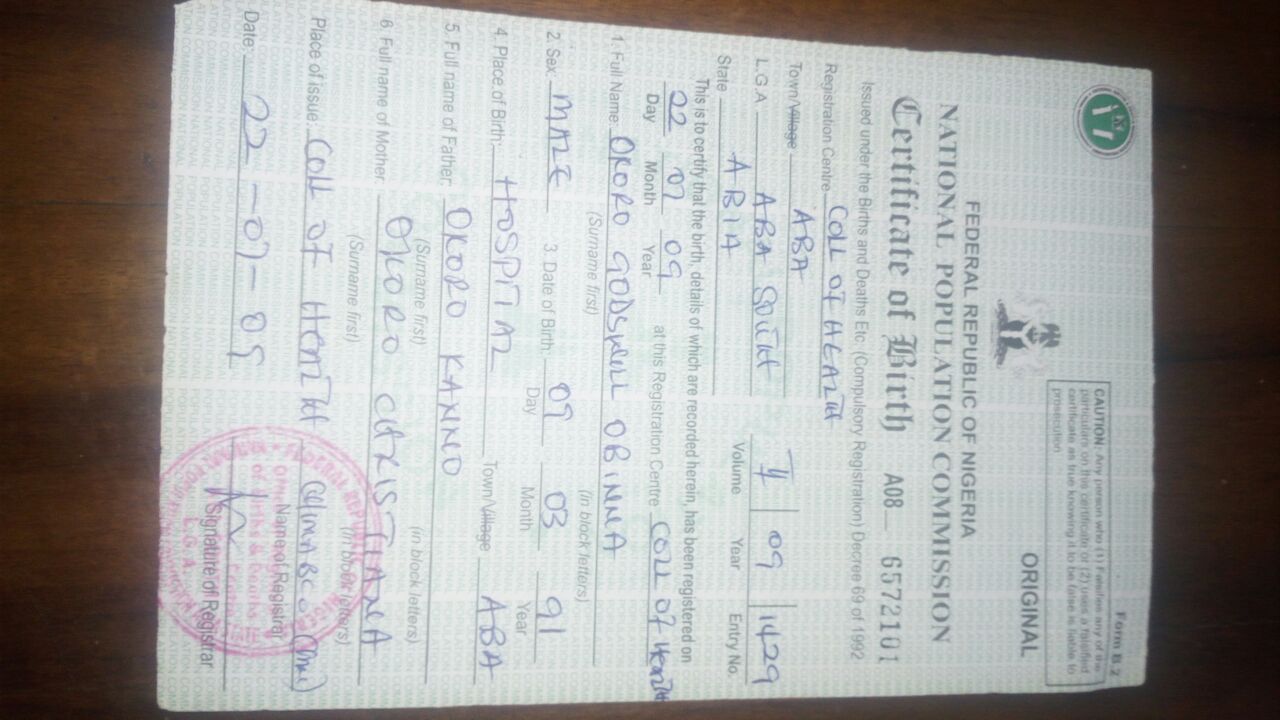 Form B.2
CAUTION: Any person who (1) Falsifies any of the
particulars on this certificate or (2) uses a falsified
certificate as true knowing it to be false is liable to
prosecution
ORIGINAL
FEDERAL REPUBLIC OF NIGERIA
NATIONAL POPULATION COMMISSION
Certificate of Birth A08 6572101
Issued under the Births and Deaths Etc. (Compulsory Registration) Decree 69 of 1992
Registration Centre COLL OF HEALTH
Town/Village ABA
L.G.A ABA SOUTH
State ABIA
II 09 1429
Volume Year Entry No.
This is to certify that the birth, details of which are recorded herein, has been registered on
22 07 09 at this Registration Centre COLL OF HEALTH
Day Month Year
1. Full Name: OKORO GODSWILL OBINNA
(Surname first) (in block letters)
2. Sex: MALE 3. Date of Birth: 09 03 91
Day Month Year
4. Place of Birth: HOSPITAL Town/Village ABA
5. Full name of Father: OKORO KANNO
(Surname first) (in block letters)
6. Full name of Mother: OKORO CHRISTIANA
(Surname first) (in block letters)
Place of issue: COLL OF HEALTH
Name of Registrar
Date: 22-07-09
Signature of Registrar
L.G.A.